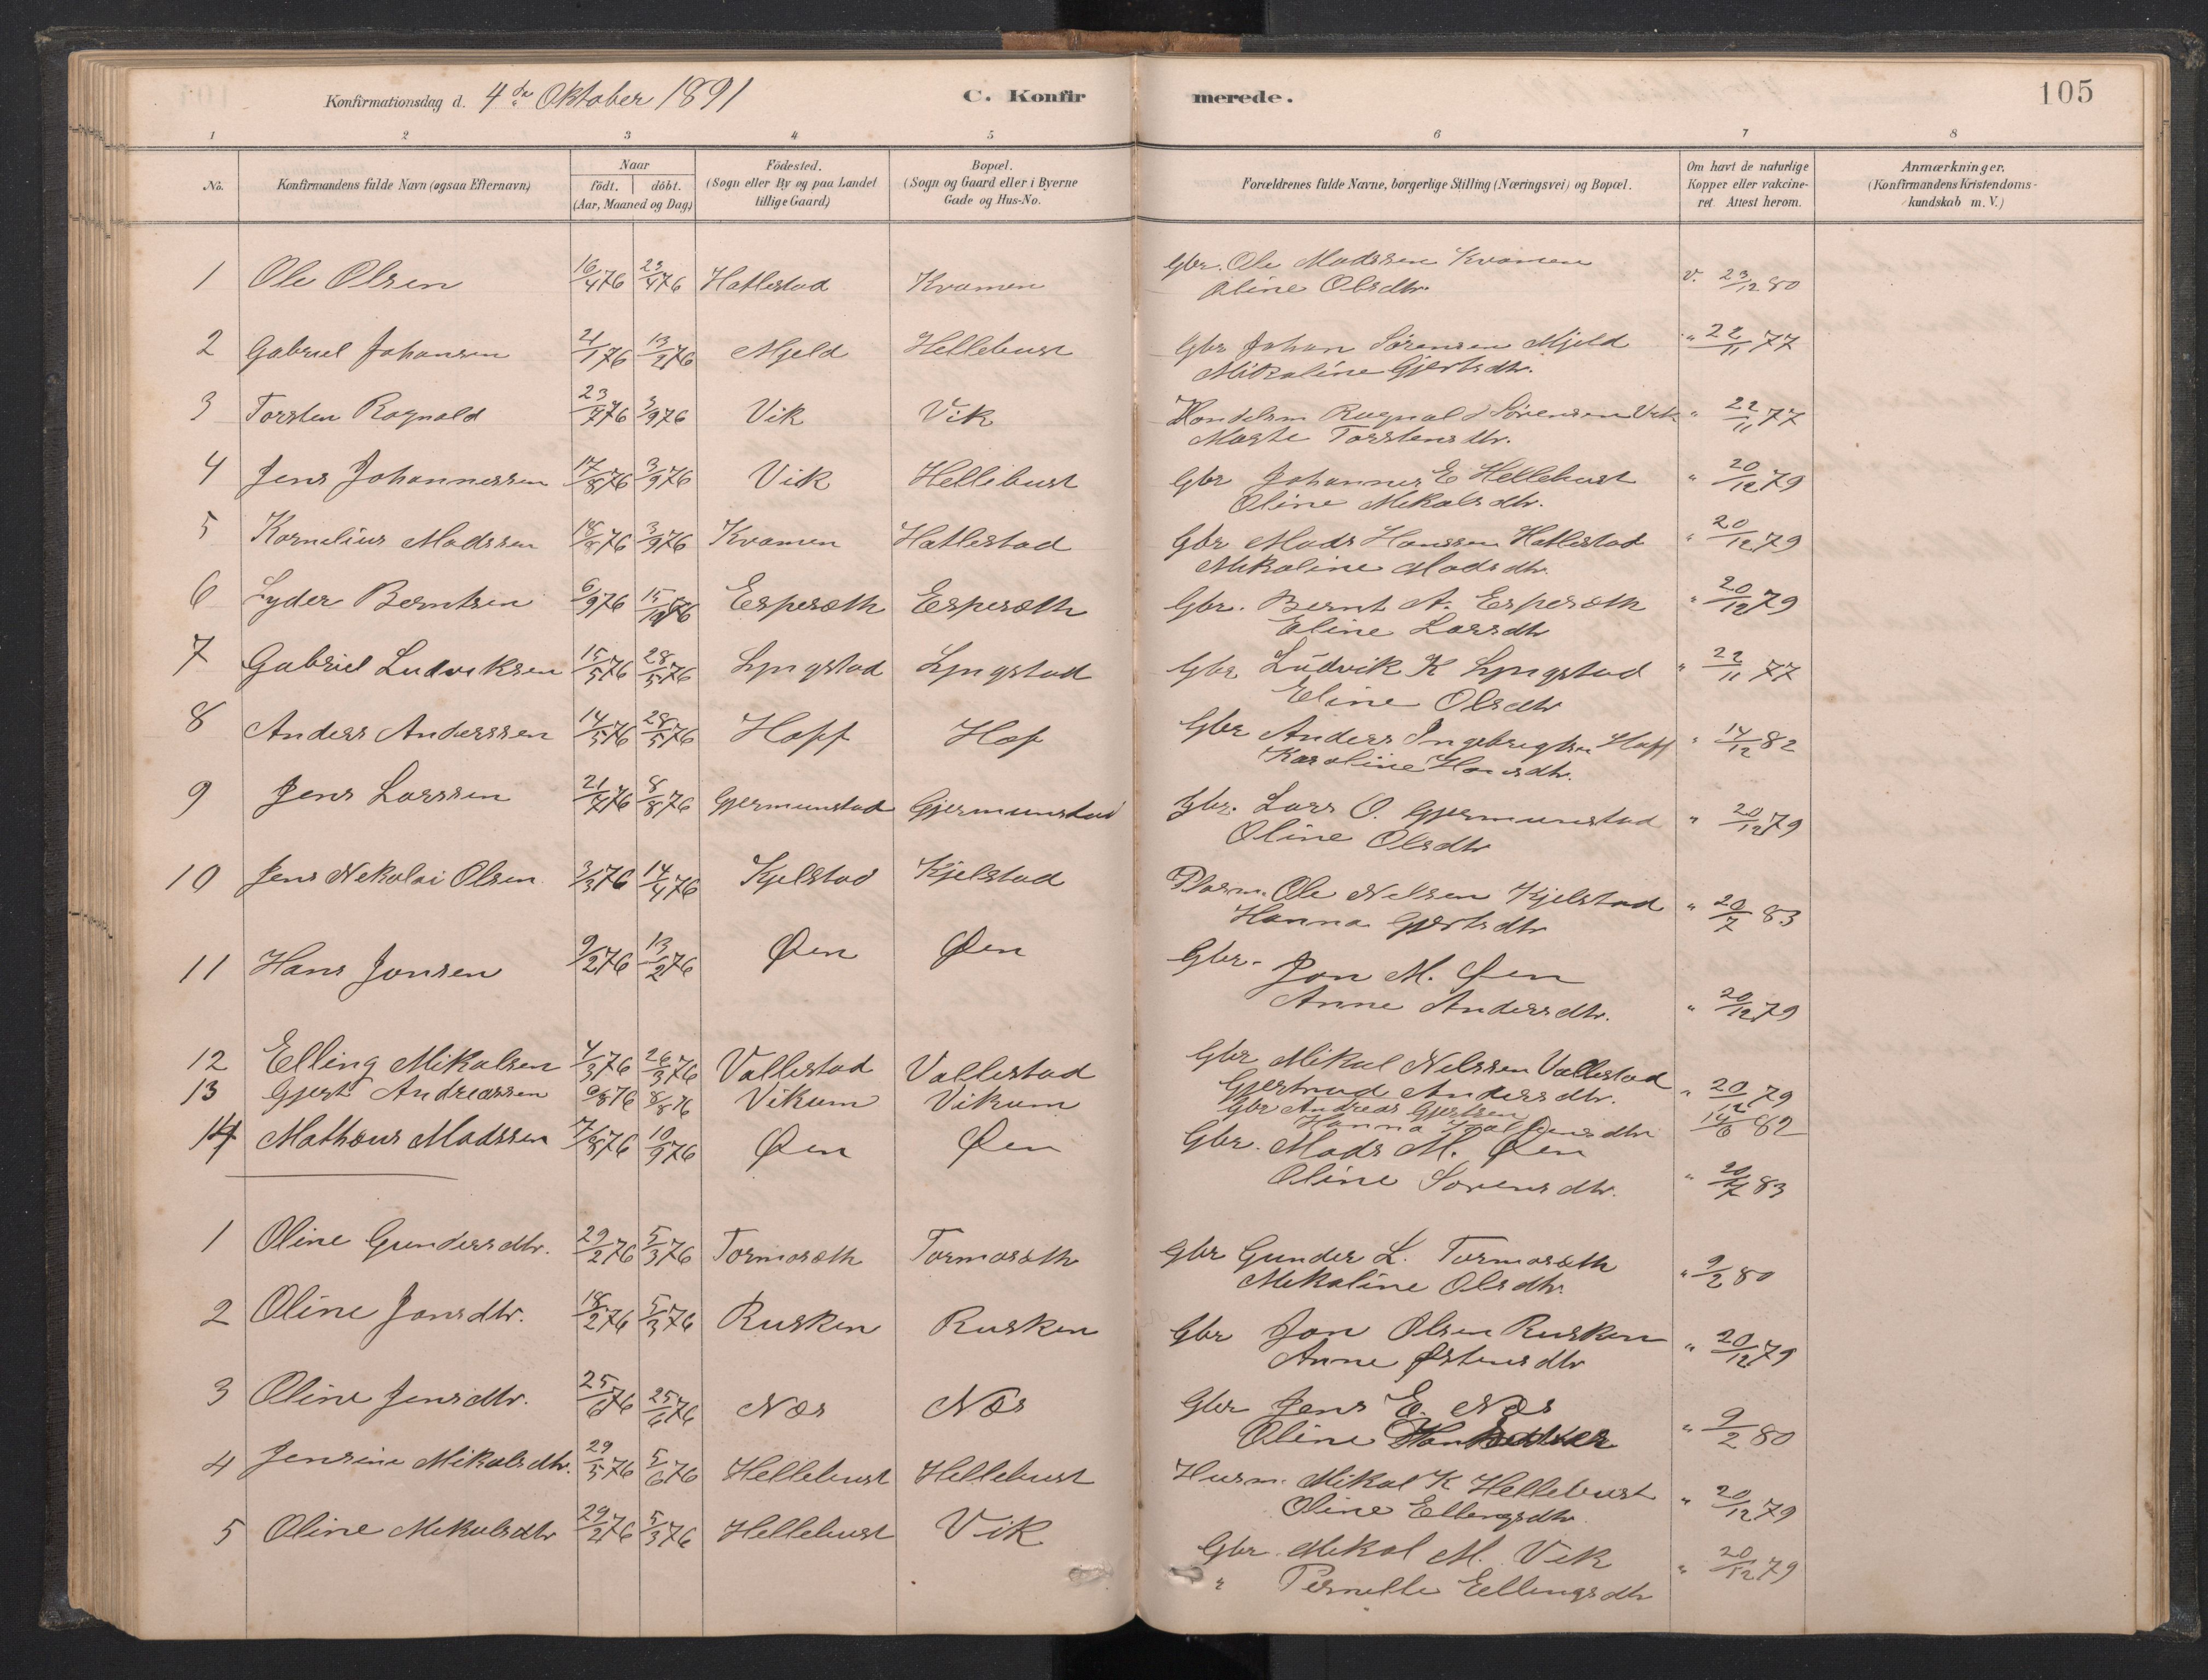 Konfirmationsdag d. 4de Oktober 1891 C. Konfir merede. 105
1 2 3 4 5 6 7 8
No. Konfirmandens fulde Navn (ogsaa Efternavn) Naar födt. döbt. (Aar, Maaned og Dag) Födested. (Sogn eller By og paa Landet tillige Gaard) Bopæl. (Sogn og Gaard eller i Byerne Gade og Hus-No. Forældrenes fulde Navne, borgerlige Stilling (Næringsvei) og Bopæl. Om havt de naturlige Kopper eller vakcineret. Attest herom. Anmærkninger. (Konfirmandens Kristendomskundskab m. V.)
1 Ole Olsen 16/4 76 23/4 76 Hatlestad Kvamen Gbr. Ole Madssen Kvamen v. 23/12 80
Oline Olsdtr.
2 Gabriel Johansen 21/1 76 13/2 76 Mjeld Hellebust Gbr Johan Sørensen Mjeld " 22/11 77
Mikaline Gjertsdtr.
3 Torsten Ragnald 23/7 76 3/9 76 Vik Vik Handelsm Ragnald Sørensen Vik " 22/11 77
Marte Torstensdtr.
4 Jens Johannessen 17/8 76 3/9 76 Vik Hellebust Gbr Johannes E Hellebust " 20/12 79
Oline Mikalsdtr.
5 Kornelius Madssen 18/8 76 3/9 76 Kvamen Hatlestad Gbr Mads Hanssen Hatlestad " 20/12 79
Mikaline Madsdtr.
6 Lyder Berntsen 6/9 76 15/10 76 Espesæth Espesæth Gbr. Bernt A. Espesæth " 20/12 79
Eline Larsdtr
7 Gabriel Ludviksen 15/5 76 28/5 76 Lyngstad Lyngstad Gbr Ludvik K Lyngstad " 22/11 77
Eline Olsdtr
8 Anders Anderssen 14/5 76 28/5 76 Hoff Hof Gbr Anders Ingebrigtsn Hoff " 14/12 82
Karoline Hansdtr.
9 Jens Larssen 21/7 76 8/8 76 Gjermunstad Gjermunstad Gbr. Lars O. Gjermunstad " 20/12 79
Oline Olsdtr
10 Jens Nekolai Olsen 3/3 76 14/4 76 Kjelstad Kjelstad Plasm. Ole Nelsen Kjelstad " 20/7 83
Hanna Gjertsdtr
11 Hans Jonsen 9/2 76 13/2 76 Øen Øen Gbr. Jon M. Øen
Anne Andersdtr. " 20/12 79
12 Elling Mikalsen 4/3 76 26/3 76 Vallestad Vallestad Gbr Mikal Nelssen Vallestad
Gjertrud Andersdtr. " 20/12 79
13 Gjert Andreassen 6/8 76 8/8 76 Vikum Vikum Gbr Andreas Gjertsen
Hanna dtr 14/6 82
14 Mathæus Madssen 7/8 76 10/9 76 Øen Øen Gbr. Mads M. Øen
Oline Sørensdtr. " 20/7 83
1 Oline Gundersdtr. 29/2 76 5/3 76 Tormosæth Tormosæth Gbr Gunder L. Tormosæth " 9/2 80
Mikaline Olsdtr.
2 Oline Jonsdtr. 18/2 76 5/3 76 Rusken Rusken Gbr Jon Olsen Rusken " 20/12 79
Anne Østensdtr
3 Oline Jensdtr. 25/6 76 25/6 76 Næs Næs Gbr Jens E. Næs " 9/2 80
Oline
4 Jensine Mikalsdtr. 29/5 76 5/6 76 Hellebust Hellebust Husm. Mikal K Hellebust " 20/12 79
Oline Ellingsdtr.
5 Oline Mikalsdtr 29/2 76 5/3 76 Hellebust Vik Gbr Mikal M. Vik " 20/12 79
" Pernelle Ellingsdtr